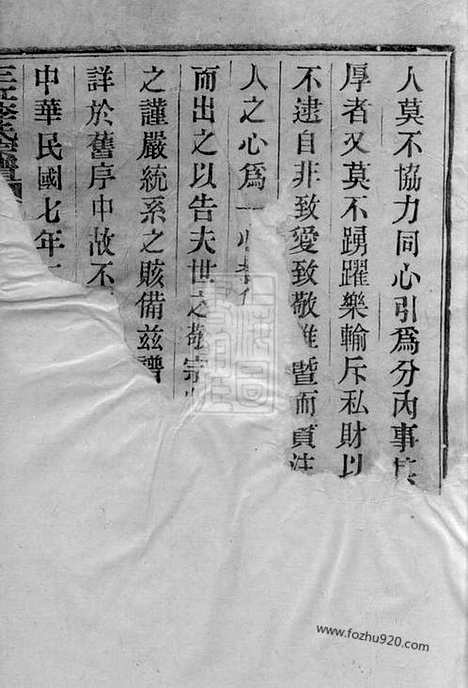 人莫不協力同心引爲分內事
厚者又莫不踴躍樂輸斥私財以
不逮自非致愛致敬誰暨而貫注
人之心爲一
而出之以告夫世之敬宗
之謹嚴統系之賅備茲譜
詳於舊序中故不
中華民國七年
三江李氏宗譜
www.fozhu920.com